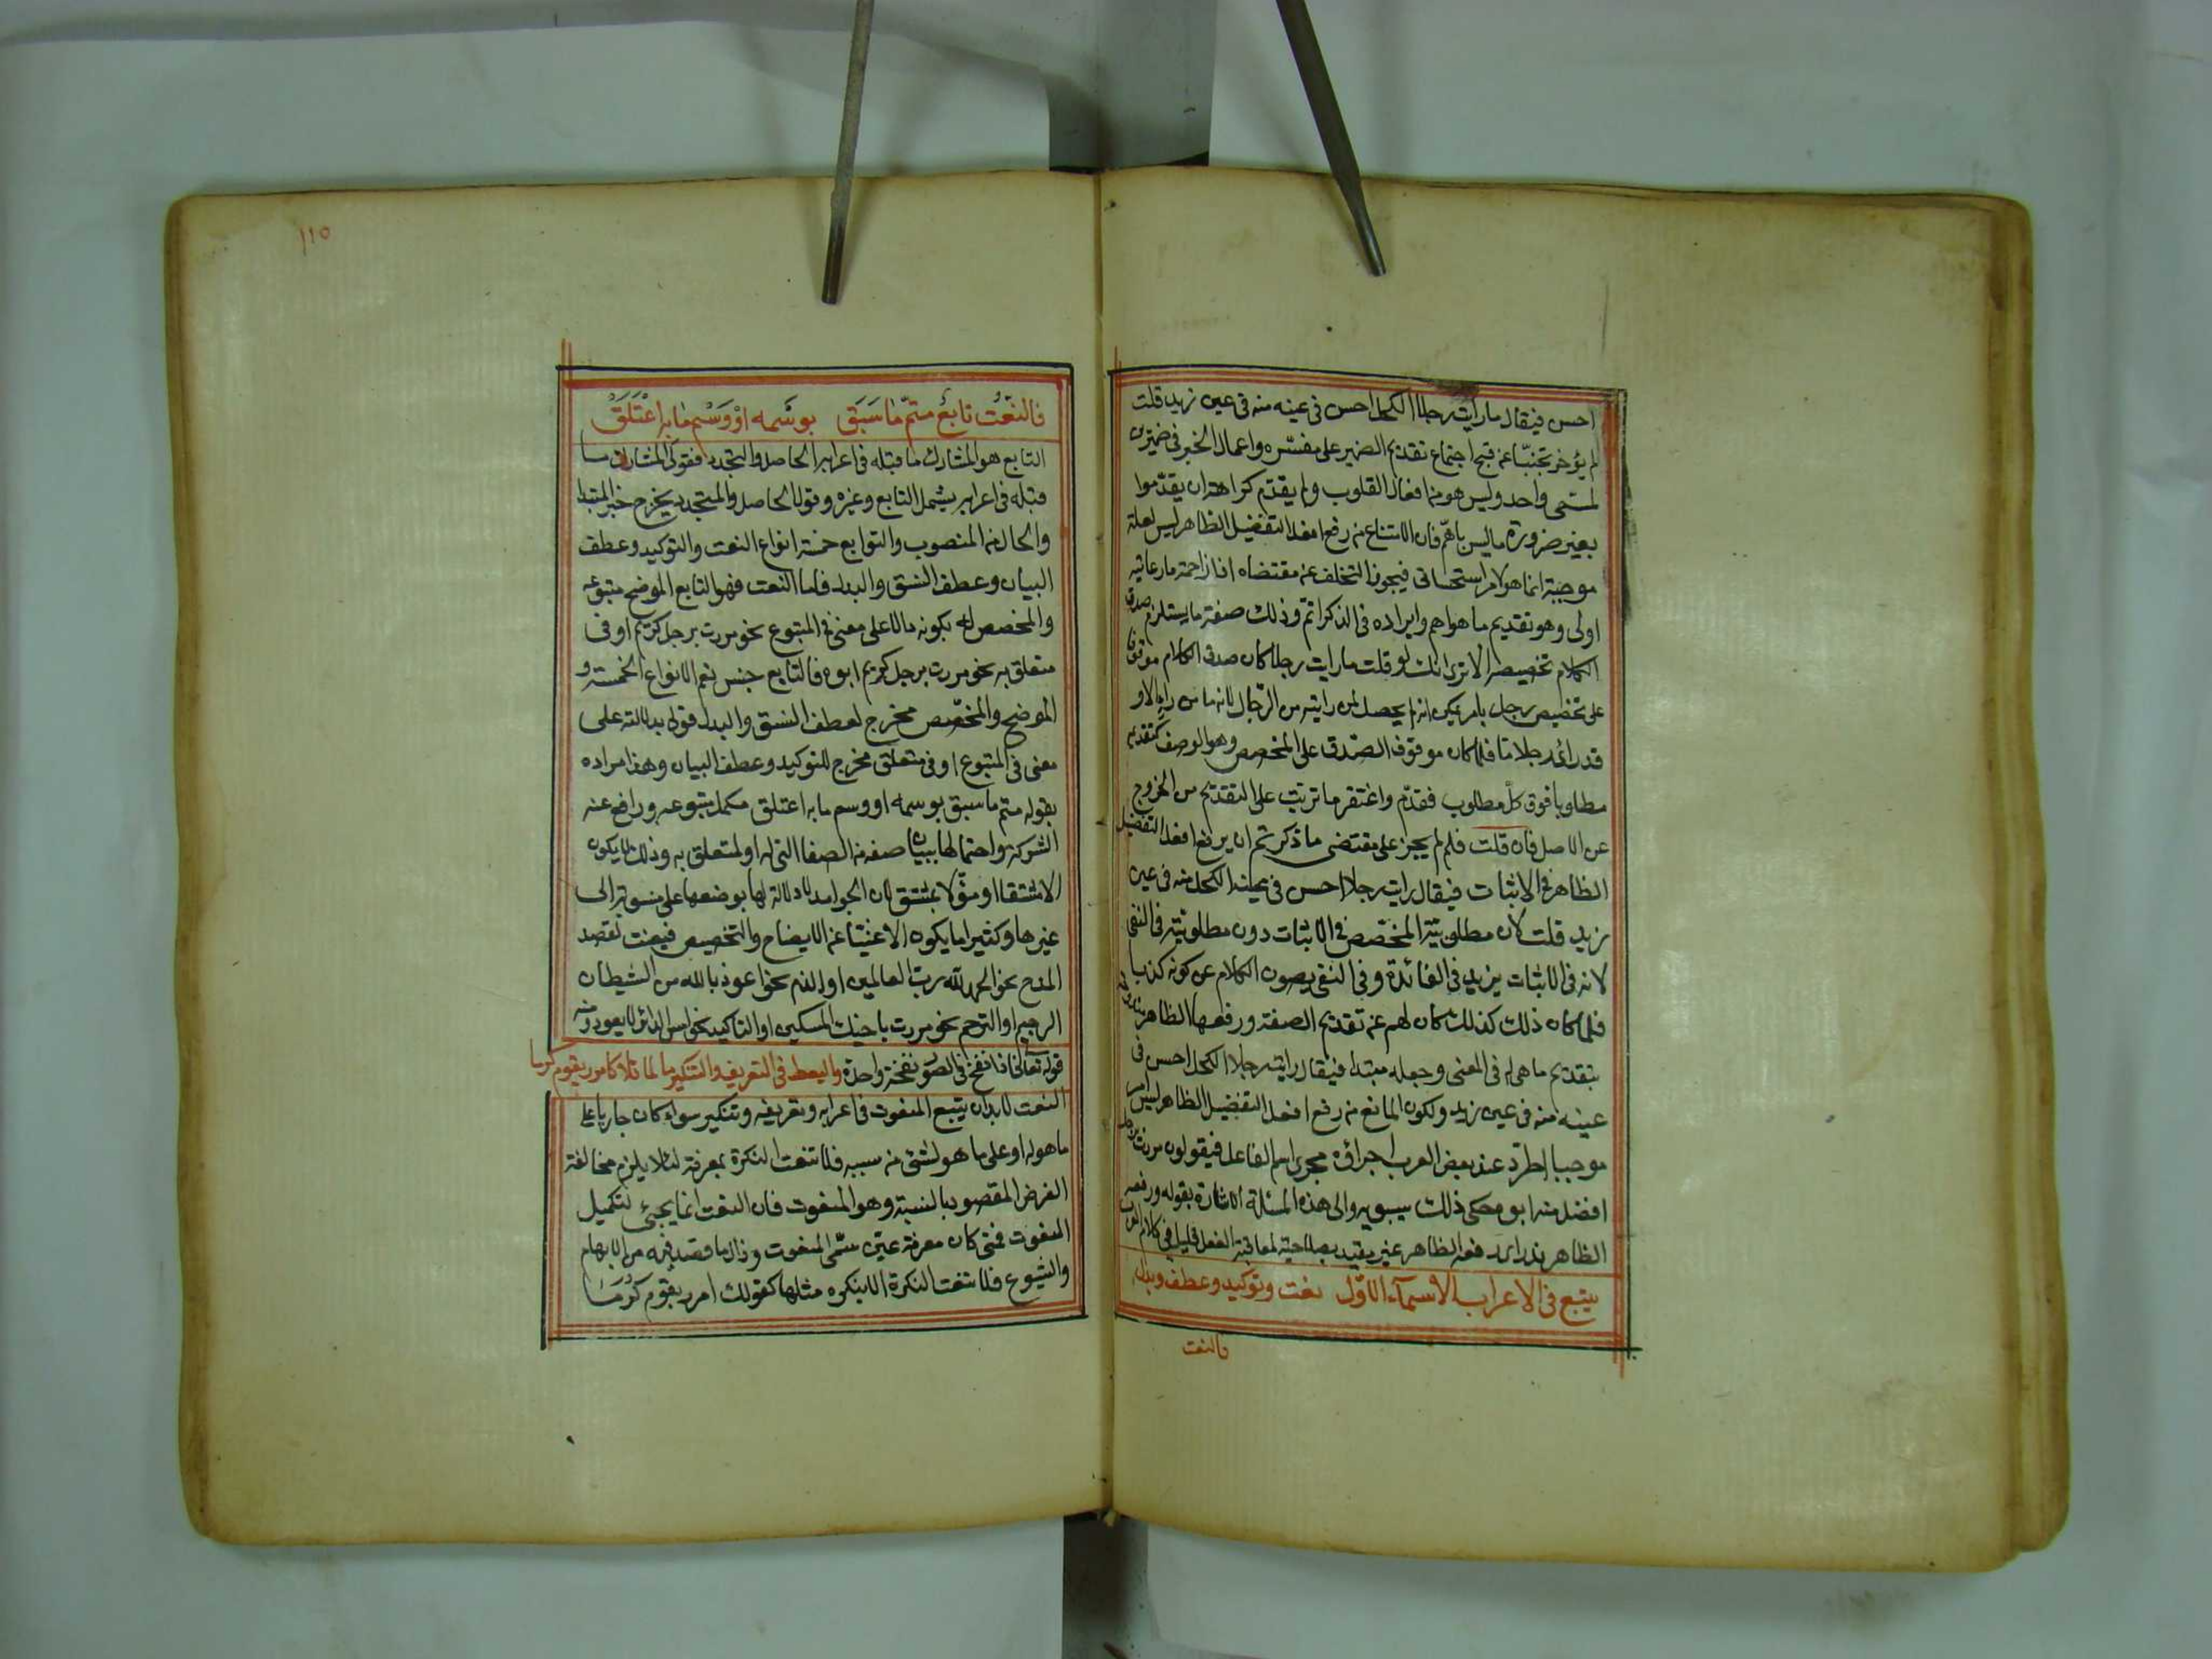 احسن فيقال ما رايت رجلا الكحل احسن فى عينه منه فى عين زيد قلت
لم يؤخر تجنبا عن قبح اجتماع تقديم الضمير على مفسّره واعمال الخبر فى ضميرين
لمسمى واحد وليس هو من افعال القلوب ولم يقدّم كراهة ان يقدّموا
بغير ضرورة ما ليس باهمّ فان الامتناع من رفع افعل التفضيل الظاهر ليس لعلة
موجبة انما هو لامر استحسانى فيجوز التخلف عن مقتضاه اذا زاحمه ما رعايته
اولى وهو تقديم ما هو اهم وايراده فى الذكر اتمّ وذلك صفة ما يستلزم صدق
الكلام تخصيصه الا ترى انك لو قلت ما رايت رجلا كان صدق الكلام موقوفا
على تخصيص رجل بامر يمكن انه لم يحصل لمن رايته من الرّجال لانه ما من راء الا و
قد راى رجلا ما فلما كان موقوف الصّدق على المخصص وهو الوصف كان تقديمه
مطلوبا فوق كل مطلوب فقدّم واغتفر ما ترتب على التقديم من الخروج
عن الاصل فان قلت فلم لم يجز على مقتضى ما ذكرتم ان يرفع افعل التفضيل
الظاهر فى الاثبات فيقال رايت رجلا احسن فى عينه الكحل منه فى عين
زيد قلت لان مطلوبيّة المخصّص فى الاثبات دون مطلوبيّته فى النفى
لانه فى الاثبات يزيد فى الفائدة وفى النفى يصون الكلام عن كونه كذبا
فلما كان ذلك كذلك كان لهم عن تقديم الصفة ورفعها الظاهر مندوحة
بتقديم ما هى له فى المعنى وجعله مبتدا فيقال رايت رجلا الكحل احسن فى
عينه منه فى عين زيد ولكون المانع من رفع افعل التفضيل الظاهر ليس امرا
موجبا اطّرد عند بعض العرب اجراؤه مجرى اسم الفاعل فيقولون مررت برجل
افضل منه ابوه حكى ذلك سيبويه والى هذه المسئلة الاشارة بقوله ورفعه
الظاهر نزر اى رفعه الظاهر غير مقيد بصلاحيته لمعاقبة الفعل قليل فى كلام العرب
يتبع فى الاعراب الاسمآء الاوّل نعت وتوكيد وعطف وبدل
فالنعت
١١٥
فالنّعت تابع متمّ ما سَبَق بوسمه اوْ وَسْم ما به اعْتَلَقْ
التابع هو المشارك ما قبله فى اعرابه الحاصل والتجدد فقولى المشارك ما
قبله فى اعرابه يشمل التابع وغيره وقولنا الحاصل والمتجدد يخرج خبر المبتدا
والحال من المنصوب والتوابع خمسة انواع النعت والتوكيد وعطف
البيان وعطف النسق والبدل فاما النعت فهو التابع الموضح متبوعه
والمخصص له بكونه دالا على معنى فى المتبوع نحو مررت برجل كريم او فى
متعلق به نحو مررت برجل كريم ابوه فالتابع جنس يعم الانواع الخمسة و
الموضح والمخصّص مخرج لعطف النسق والبدل قولى بدلالته على
معنى فى المتبوع او فى متعلق مخرج للتوكيد وعطف البيان وهذا مراده
بقوله متم ما سبق بوسمه او وسم ما به اعتلق مكمل متبوعه ورافع عنه
الشركة واحتمالها ببيان صفة من الصفات التى له او لمتعلق به وذلك لا يكون
الا مشتقا او مؤّلا بمشتق لان الجوامد لا دلالة لها بوضعها على منسوبة الى
غيرها وكثيرا ما يكون الاغنيا عن الايضاح والتخصيص فينعت لقصد
المدح نحو الحمد لله ربّ العالمين او الذم نحو اعوذ بالله من الشيطان
الرجيم او الترحم نحو مررت باخيك المسكين او التاكيد نحو امس الدابر لا يعود ومنه
قوله تعالى فاذا نفخ فى الصّور نفخة واحدة وليعط فى التعريف والتنكير ما لما تلا كامرر بقوم كرما
النعت لابد ان يتبع المنعوت فى اعرابه وتعريفه وتنكيره سواء كان جاريا على
ما هو له او على ما هو لشئ من سببه فلا تنعت النكرة بمعرفة لئلا يلزم مخالفة
الغرض المقصود بالنسبة وهو المنعوت فان النعت انما يجئ لتكميل
المنعوت فمتى كان معرفة عيّن مسمّى المنعوت وزال ما قصد فيه من الابهام
والشيوع فلا تنعت النكرة الا بنكرة مثلها كقولك امرر بقوم كرَمَا